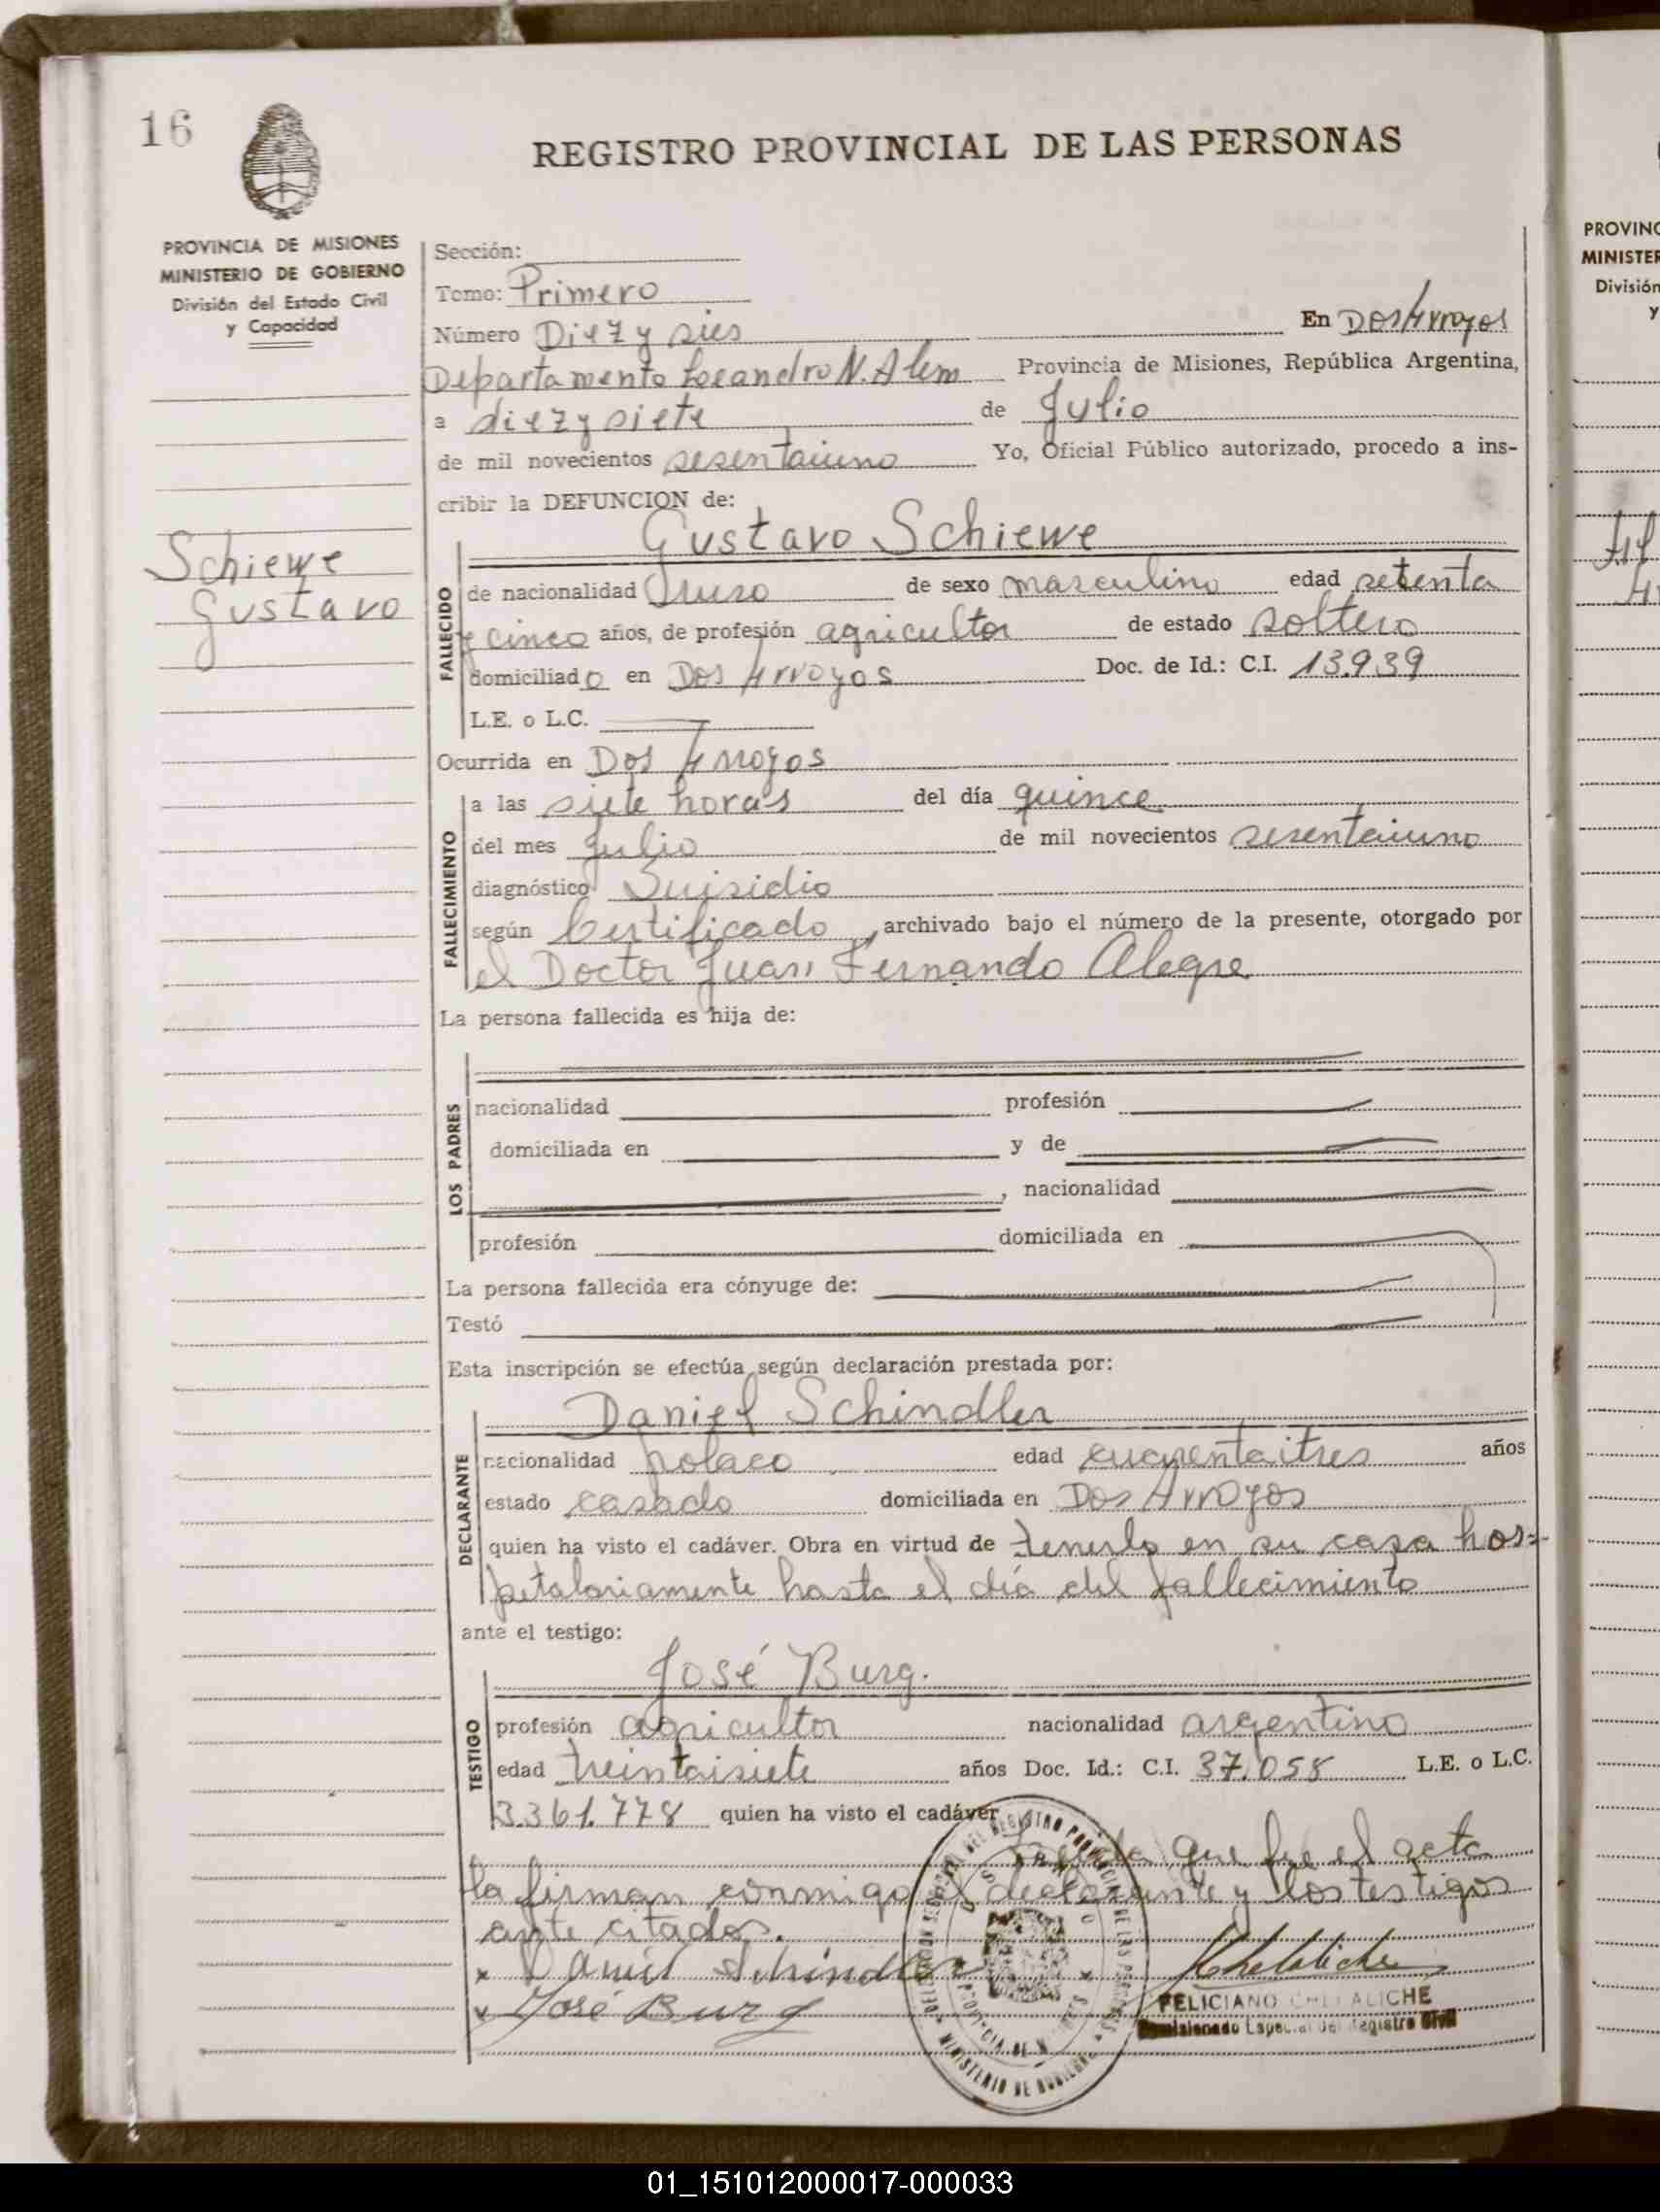 16
REGISTRO PROVINCIAL DE LAS PERSONAS
PROVINCIA DE MISIONES
MINISTERIO DE GOBIERNO
División del Estado Civil
y Capacidad
Schiewe
Gustavo
Sección:
Tomo: Primero
Número Diez y sies En Dos Arroyos
Departamento Leeandro N. Alem Provincia de Misiones, República Argentina,
a diez y siete de Julio
de mil novecientos sesentaiuno Yo, Oficial Público autorizado, procedo a ins-
cribir la DEFUNCION de:
Gustavo Schiewe
FALLECIDO
de nacionalidad Ruso de sexo masculino edad setenta
y cinco años, de profesión agricultor de estado soltero
domiciliado en Dos Arroyos Doc. de Id.: C.I. 13.939
L.E. o L.C.
Ocurrida en Dos Arroyos
FALLECIMIENTO
a las siete horas del día quince
del mes Julio de mil novecientos sesentaiuno
diagnóstico Suisidio
según Certificado, archivado bajo el número de la presente, otorgado por
el Doctor Juan Fernando Alegre
La persona fallecida es hija de:
LOS PADRES
nacionalidad profesión
domiciliada en y de
, nacionalidad
profesión domiciliada en
La persona fallecida era cónyuge de:
Testó
Esta inscripción se efectúa según declaración prestada por:
Daniel Schindler
DECLARANTE
nacionalidad polaco edad cuarentaitres años
estado casado domiciliada en Dos Arroyos
quien ha visto el cadáver. Obra en virtud de tenerlo en su casa hos-
petalariamente hasta el día del fallecimiento
ante el testigo:
José Burg.
TESTIGO
profesión agricultor nacionalidad argentino
edad treintaisiete años Doc. Id.: C.I. 37.058 L.E. o L.C.
3.361.778 quien ha visto el cadáver
Leida que fue el acta
la firman conmigo el declarante y los testigos
ante citados.
x Daniel Schindler
x José Burg
Chelaliche
FELICIANO CHELALICHE
Comisionado Especial del Registro Civil
PROVINC
MINISTER
División
y
01_151012000017-000033